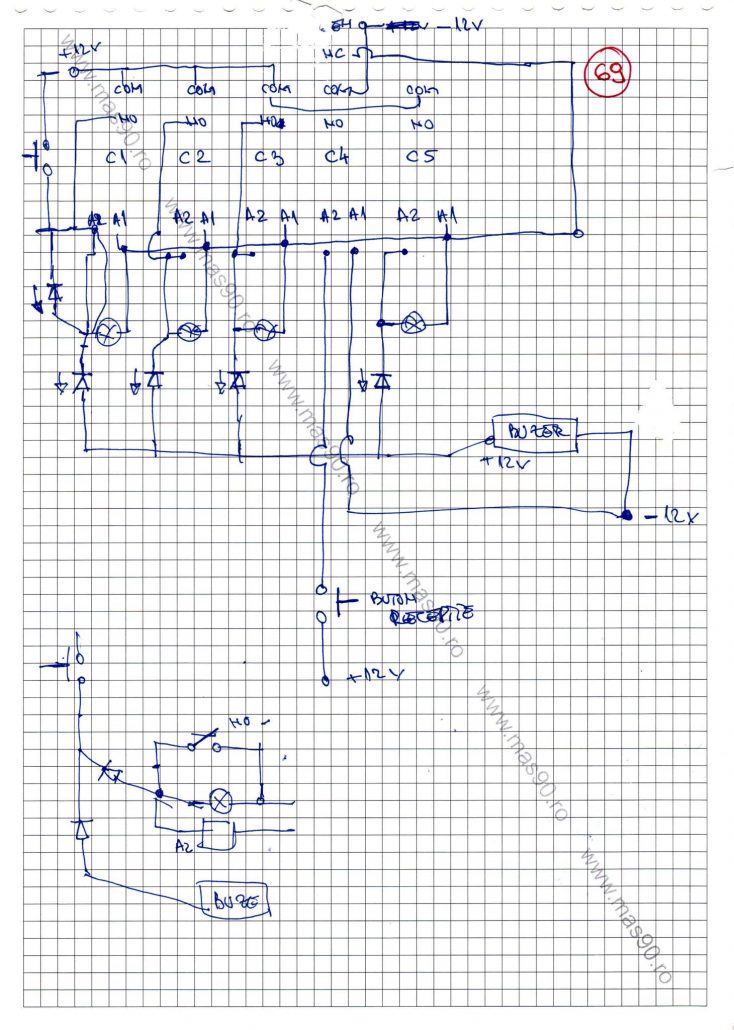 -12V
NC
69
+12V
COM COM COM COM COM
NO NO NO NO NO
C1 C2 C3 C4 C5
A2 A1 A2 A1 A2 A1 A2 A1 A2 A1
BUZER
+12V
-12V
BUTON
RECEPTIE
+12V
NO
A2
BUZE
www.mas90.ro
www.mas90.ro
www.mas90.ro
www.mas90.ro
www.mas90.ro
www.mas90.ro